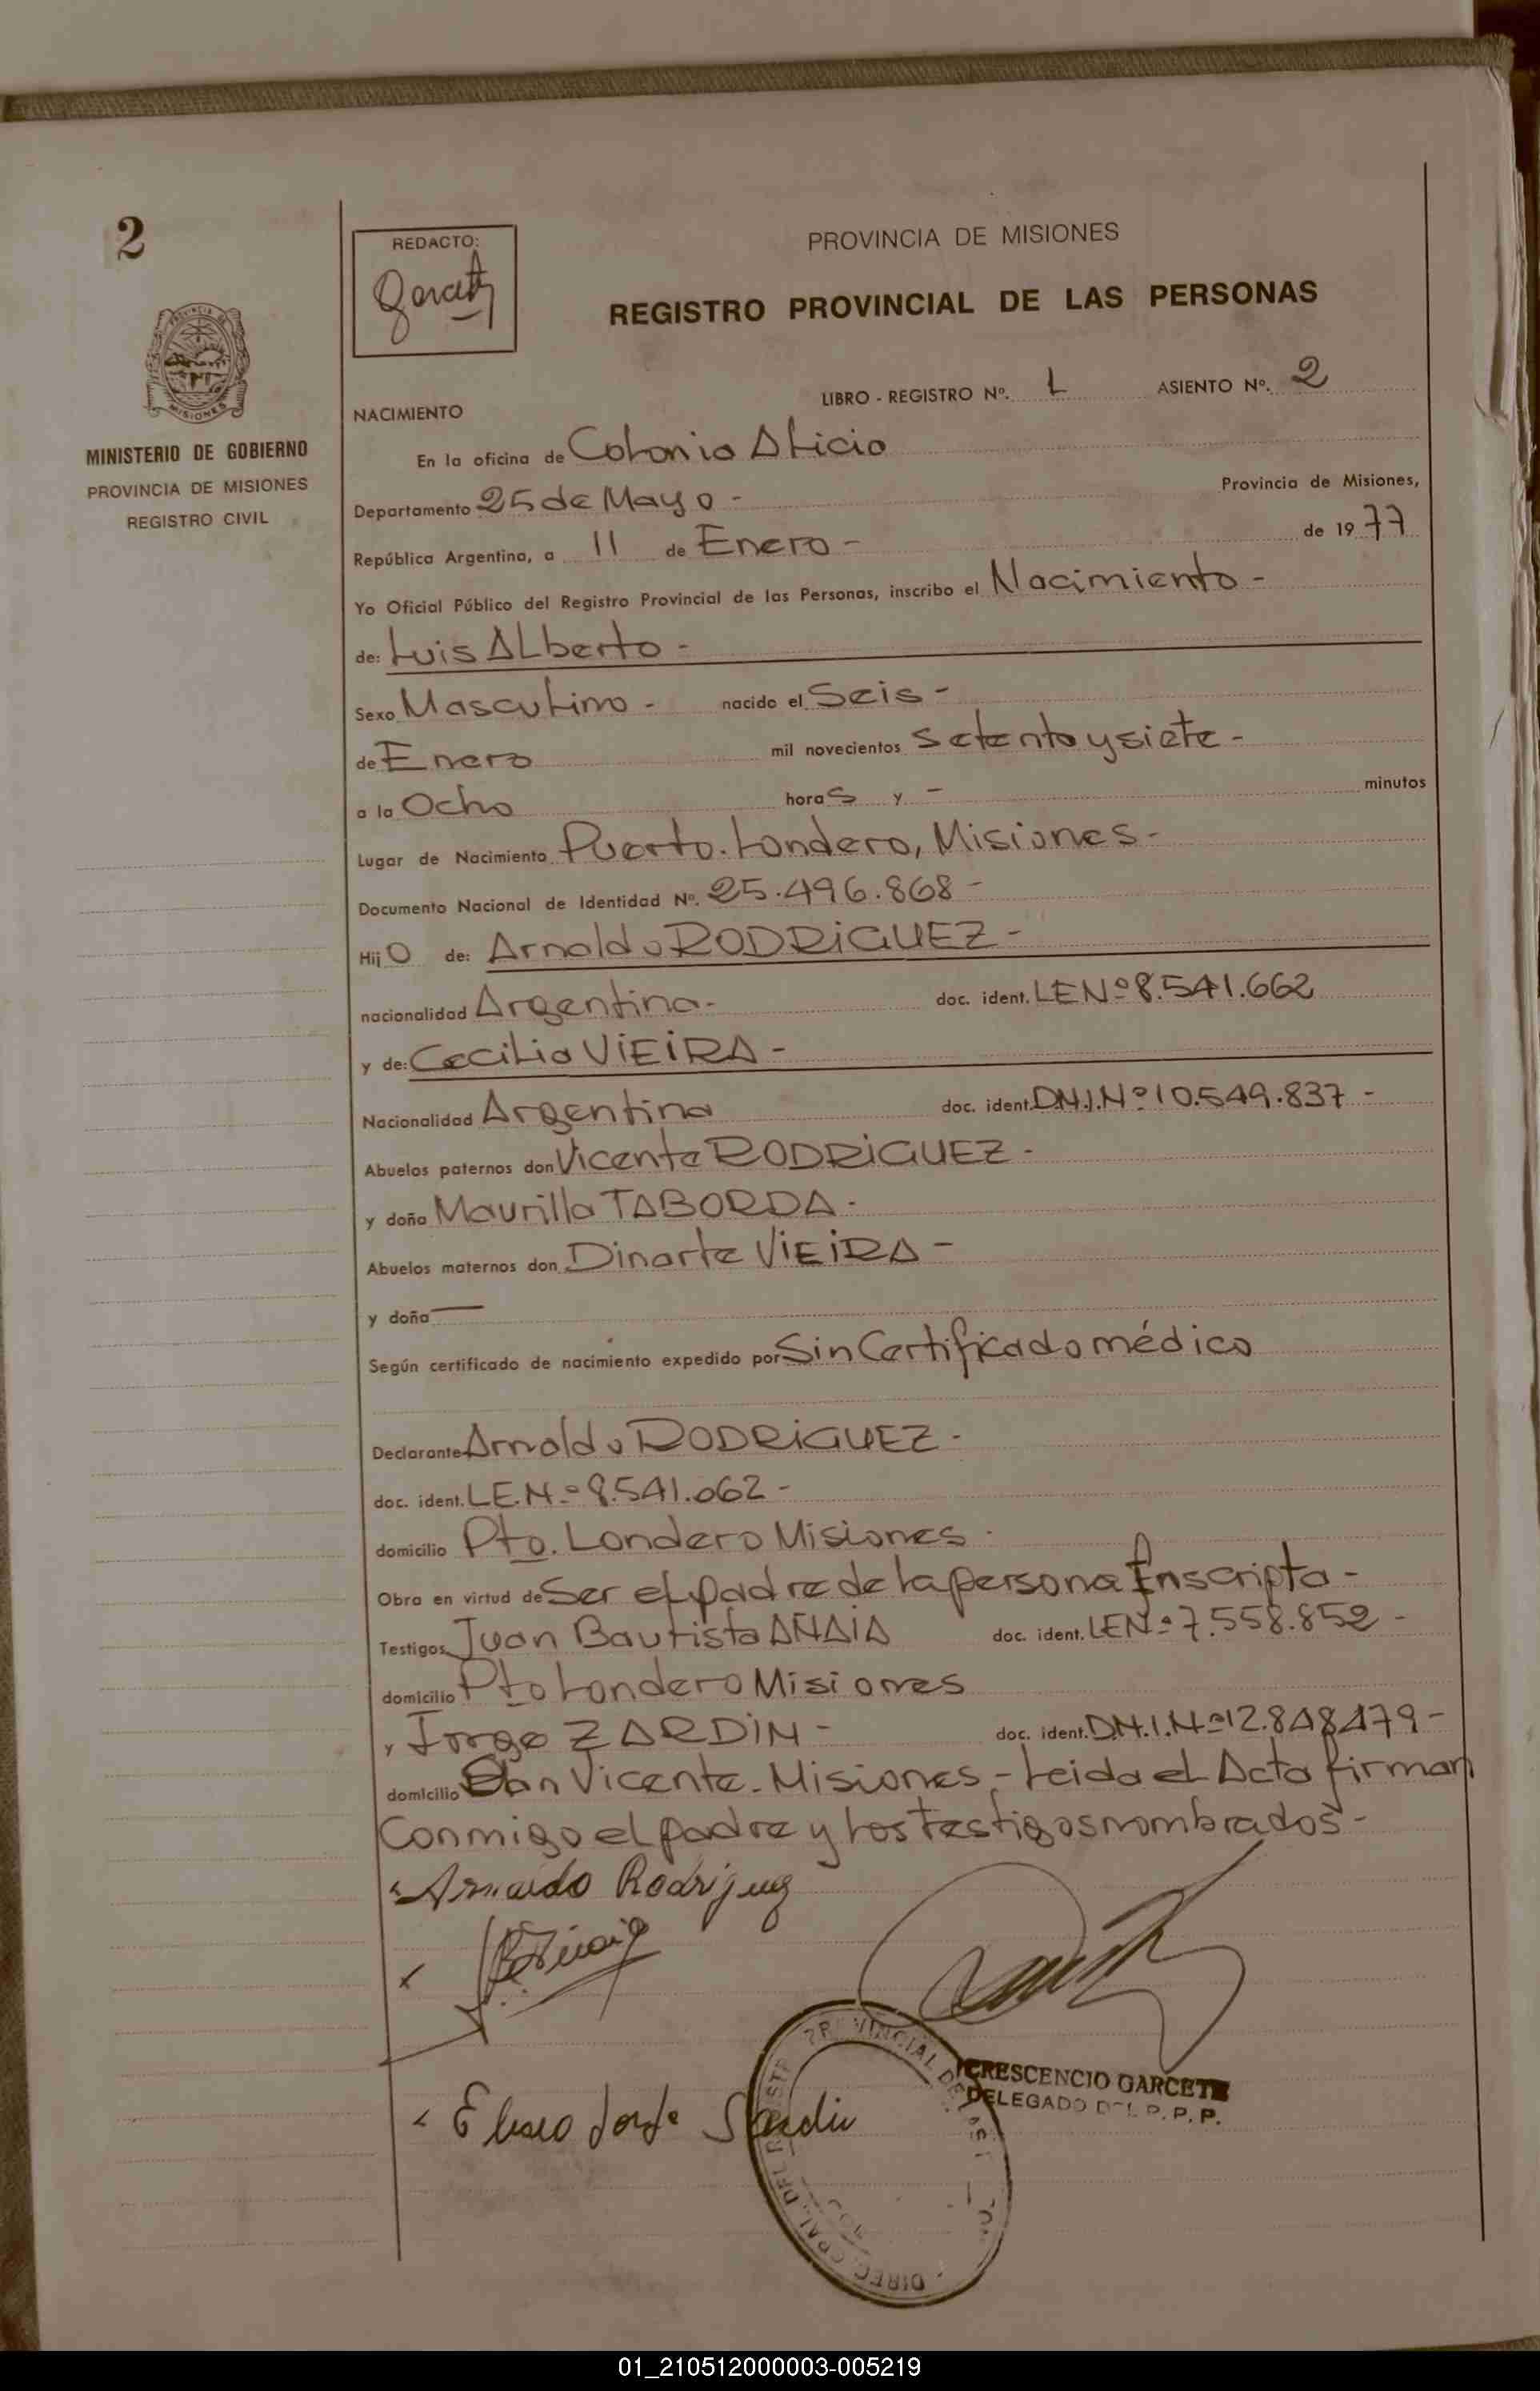 2
REDACTO:
PROVINCIA DE MISIONES
REGISTRO PROVINCIAL DE LAS PERSONAS
MISIONES
MINISTERIO DE GOBIERNO
PROVINCIA DE MISIONES
REGISTRO CIVIL
LIBRO - REGISTRO Nº. 1 ASIENTO Nº. 2
NACIMIENTO
En la oficina de Colonia Alicia
Departamento 25 de Mayo - Provincia de Misiones,
República Argentina, a 11 de Enero - de 1977
Yo Oficial Público del Registro Provincial de las Personas, inscribo el Nacimiento -
de: Luis Alberto -
Sexo Masculino - nacido el Seis -
de Enero mil novecientos Setenta y siete -
a la Ocho horas y - minutos
Lugar de Nacimiento Puerto. Londero, Misiones -
Documento Nacional de Identidad Nº. 25.496.868 -
Hijo de: Arnaldo RODRiGUEZ -
nacionalidad Argentina - doc. ident. LENº 8.541.662
y de: Cecilia ViEiRA -
Nacionalidad Argentina doc. ident. D.N.I.Nº 10.549.837 -
Abuelos paternos don Vicente RODRiGUEZ -
y doña Maurilla TABORDA -
Abuelos maternos don Dinarte ViEiRA -
y doña —
Según certificado de nacimiento expedido por Sin Certificado médico
Declarante Arnaldo RODRiGUEZ -
doc. ident. LE.Nº 8.541.062 -
domicilio Pto. Londero Misiones -
Obra en virtud de Ser el padre de la persona Inscripta -
Testigos Juan Bautista ANAIA doc. ident. LENº 7.558.852 -
domicilio Pto Londero Misiones
y Jorge ZARDIN - doc. ident. D.N.I.Nº 12.848479 -
domicilio San Vicente - Misiones - Leida el Acta firman
Conmigo el padre y los testigos nombrados -
Arnaldo Rodriguez
CRESCENCIO GARCETE
DELEGADO DEL R. P. P.
Eliseo Jorge Sardin
01_210512000003-005219